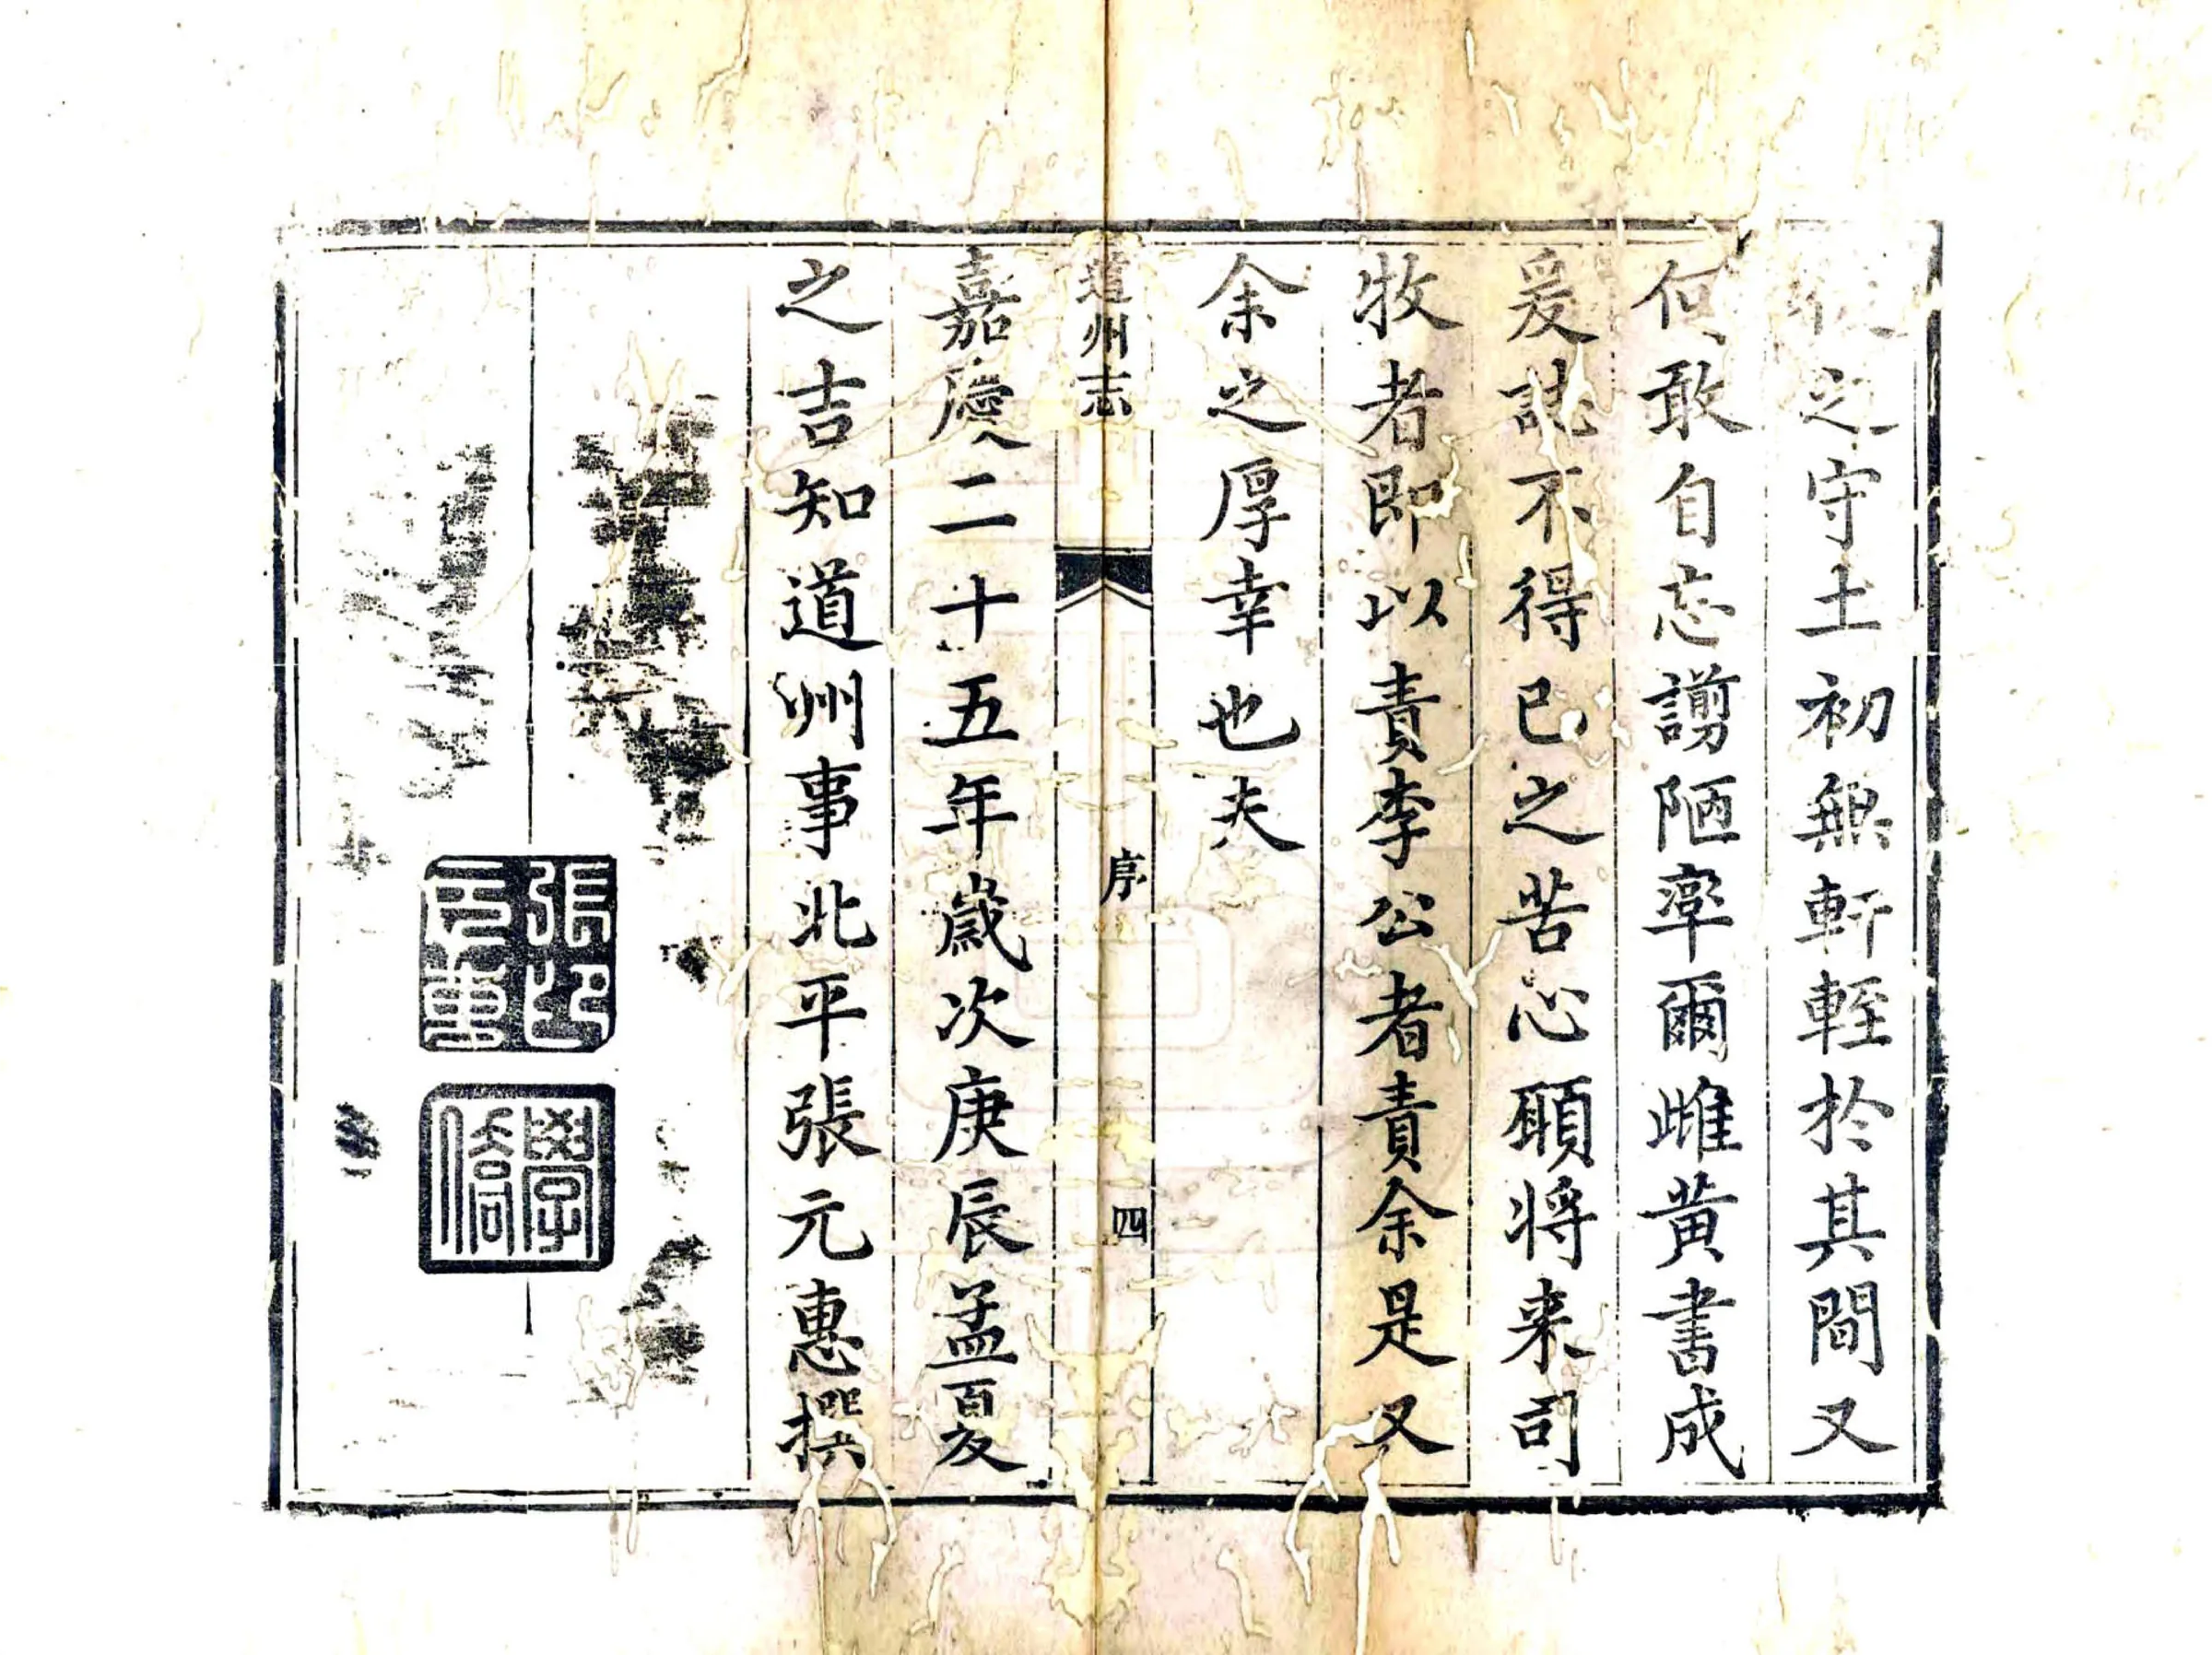 之守土初無軒輊於其間又
何敢自忘謭陋率爾雌黃書成
爰誌不得已之苦心願將来司
牧者即以責李公者責余是又
余之厚幸也夫
道州志 序 四
嘉慶二十五年歲次庚辰孟夏
之吉知道州事北平張元惠撰
張印元惠
學僑